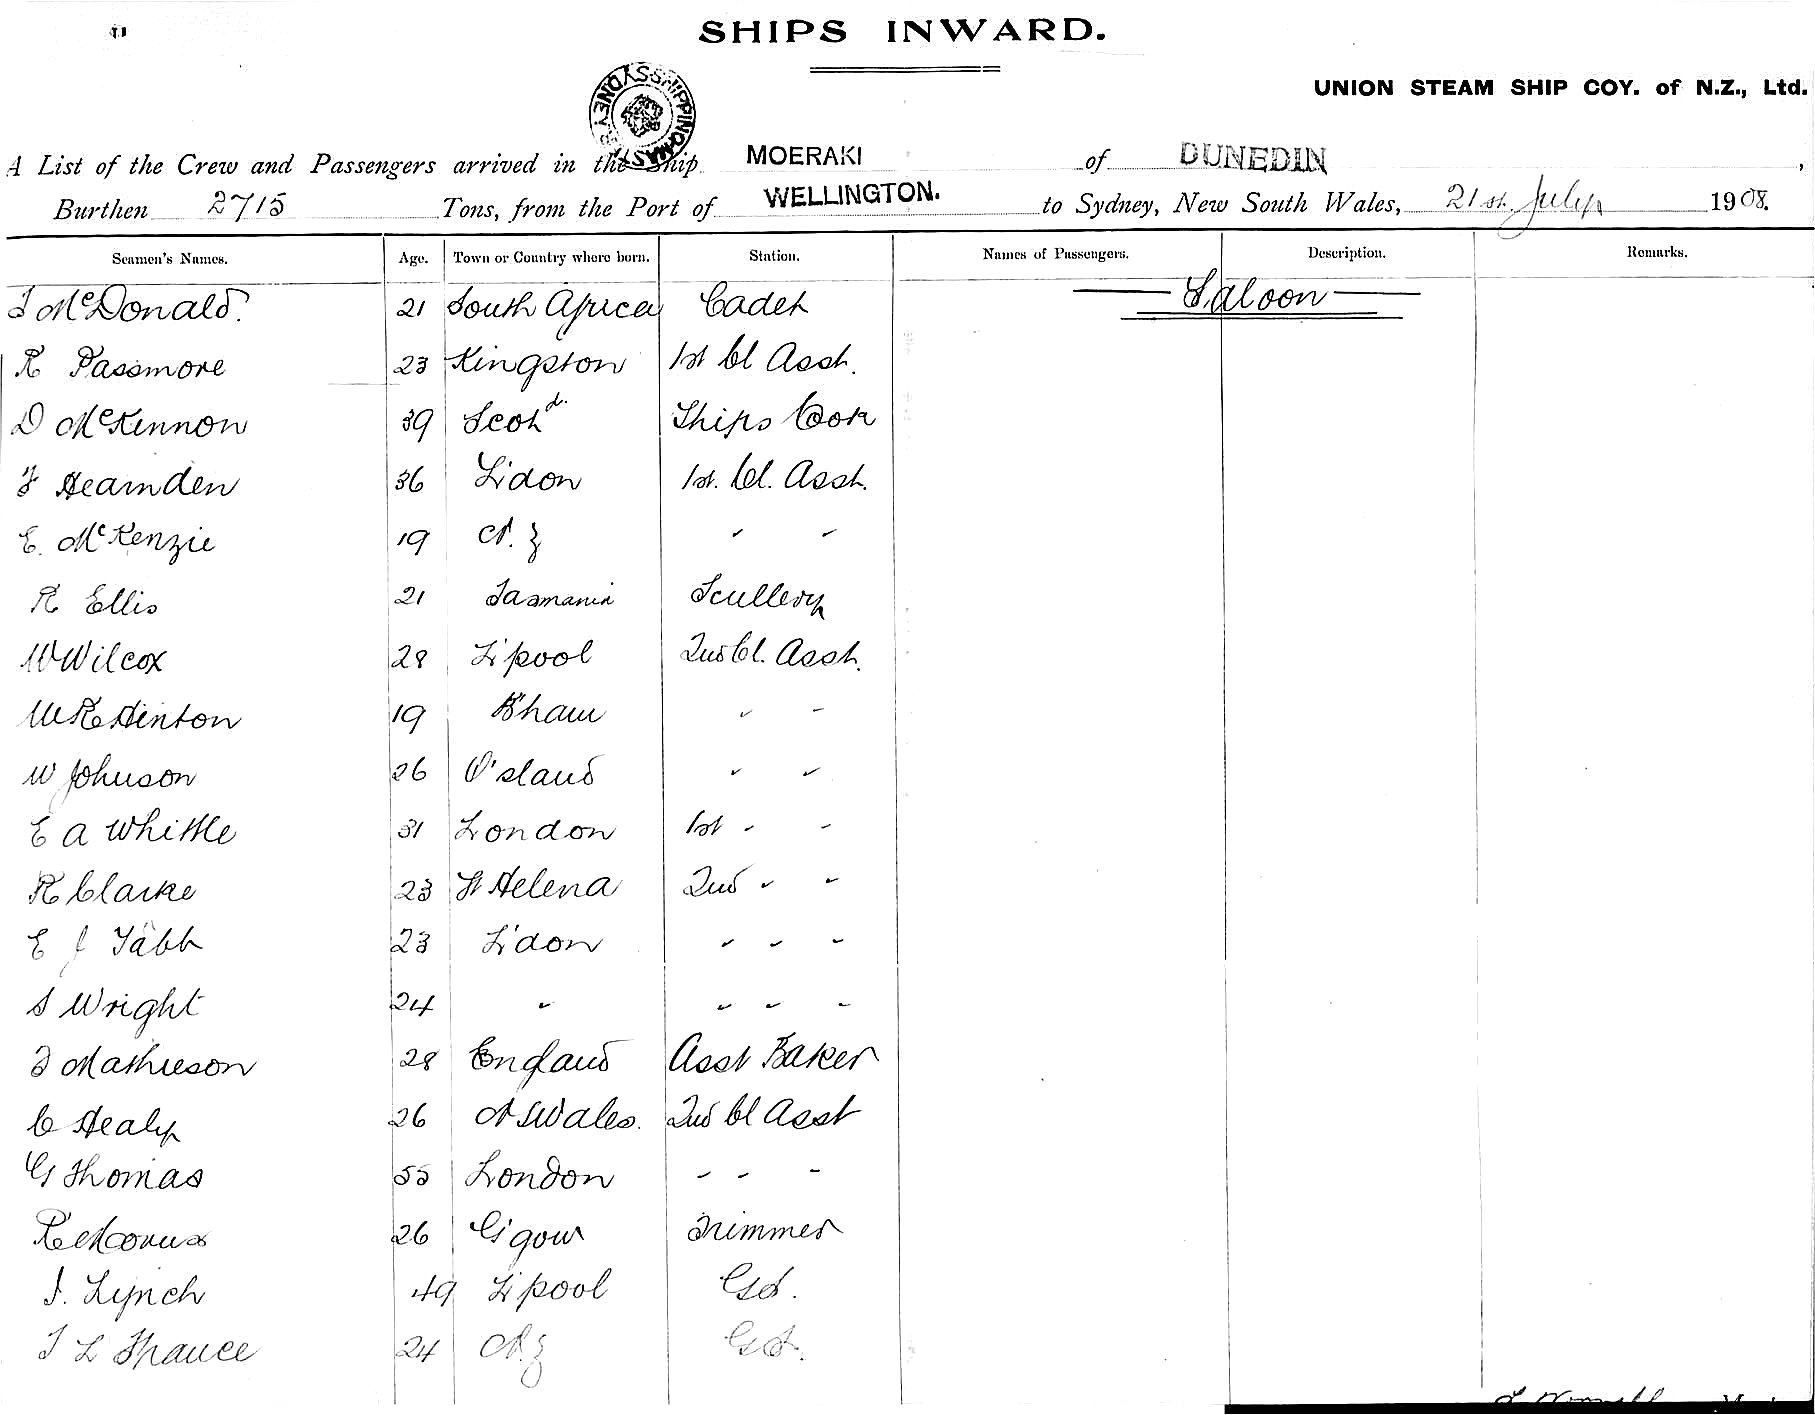 SHIPS INWARD.
UNION STEAM SHIP COY. of N.Z., Ltd.
A List of the Crew and Passengers arrived in the Ship MOERAKI of DUNEDIN,
Burthen 2715 Tons, from the Port of WELLINGTON. to Sydney, New South Wales, 21st July 1908.
Seamen's Names. Age. Town or Country where born. Station. Names of Passengers. Description. Remarks.
J McDonald. 21 South Africa Cadet Saloon
R Passmore 23 Kingston 1st Cl Asst.
D McKinnon 39 Scotd. Ships Cook
F Heamden 36 L'don 1st. Cl. Asst.
E. McKenzie 19 N.Z " "
R Ellis 21 Tasmania Scullery
W Wilcox 28 L'pool 2nd Cl. Asst.
W R Hinton 19 B'ham " "
W Johnson 26 Q'sland " "
E A Whittle 31 London 1st " "
R Clarke 23 St Helena 2nd " "
E J Tabb 23 L'don " " "
S Wright 24 " " " "
J Mathieson 28 England Asst Baker
C Healy 26 N S Wales. 2nd Cl Asst
G Thomas 55 London " " "
R 26 G'gow Trimmer
J. Lynch 49 L'pool Gd.
J L 24 N.Z Gd.